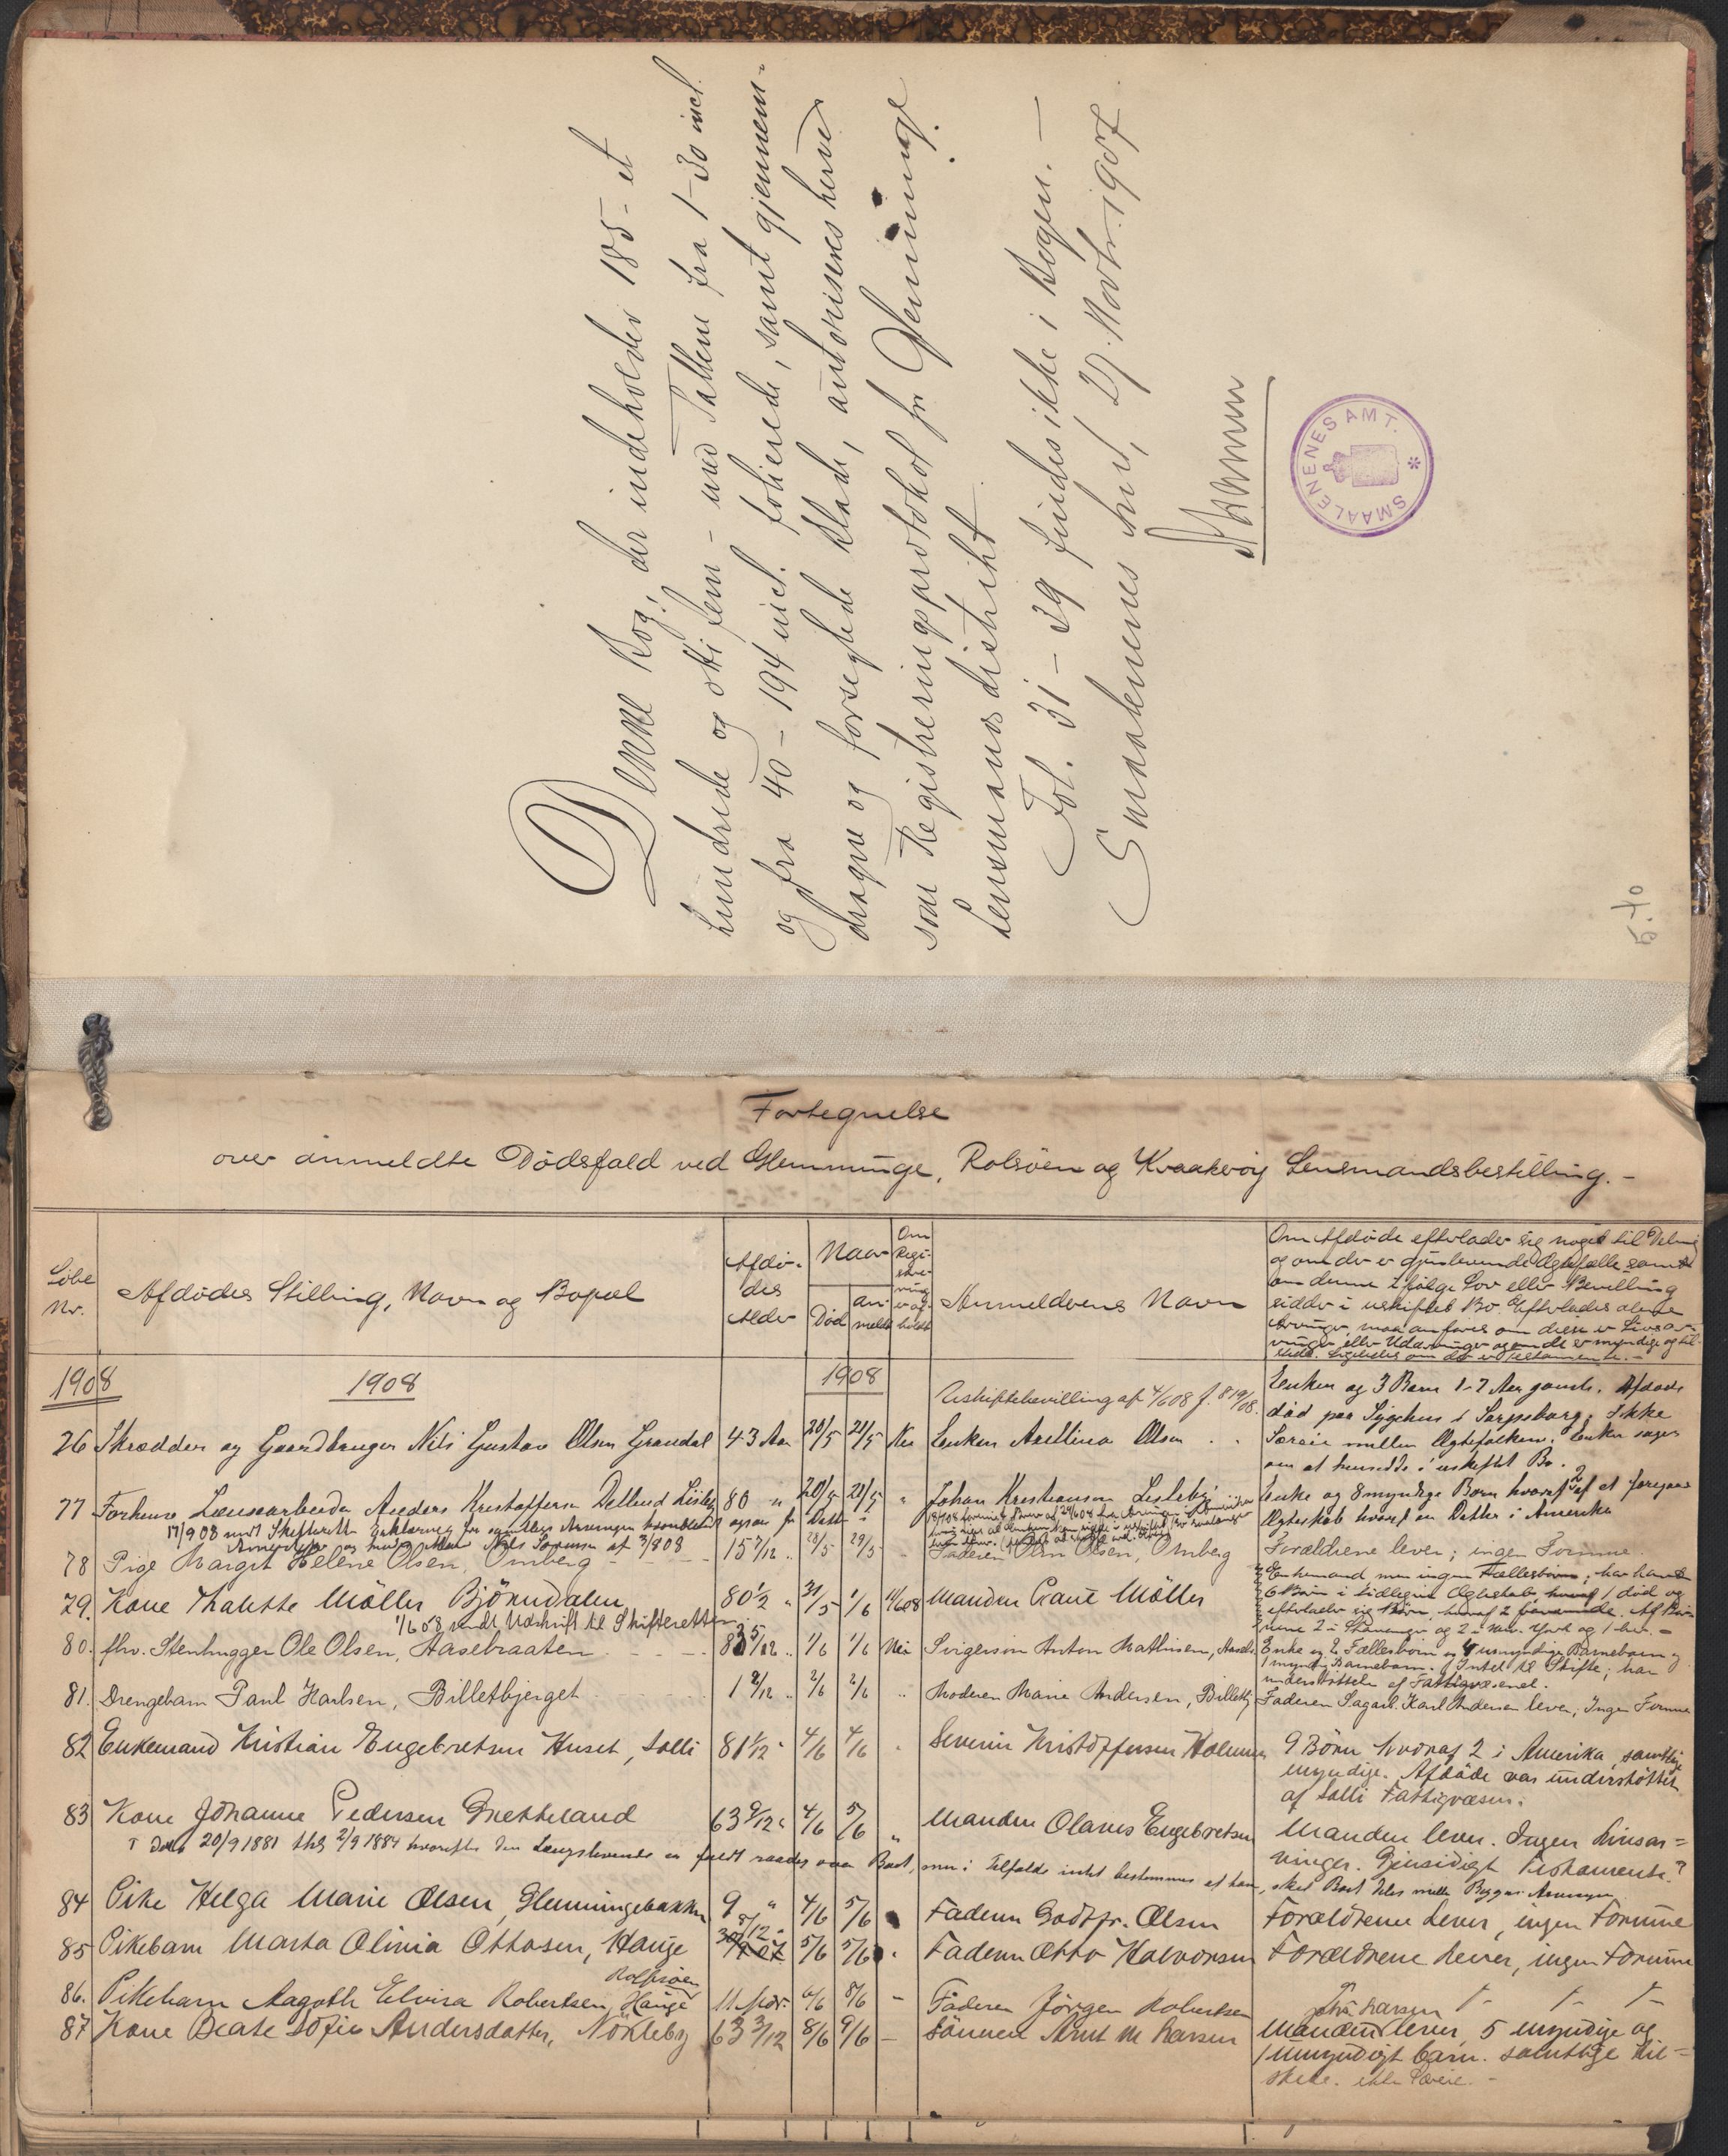 Denne Bog, der indeholder 185 - et
hundrede og otti fem - med Tallene fra 1-30 incl.
og fra 40 - 194 incl. folierede, samt gjennem-
dragne og forseglede Blade, autoriseres herved
som Registreringsprotokol for Glemminge
Lensmandsdistrikt.
Fol. 31 - 39 findes ikke i Bogen. —
Smaalenenes Amt, 27. Novbr. 1907
SMAALENENES AMT. *
5.40
Fortegnelse
over anmeldte Dødsfald ved Glemminge, Rolsöen og Kraakeröy Lensmandsbestilling. -
Löbe Nr.
Afdødes Stilling, Navn og Bopæl
Afdö-
des
Alder
Naar
Död
an-
meldt
Om
Regi-
stre-
ring
er af-
holdt
Anmelderens Navn
Om Afdøde efterlader sig noget til Deling
og om der er gjenlevende Ægtefælle samt
om denne ifølge Lov eller Bevilling
sidder i uskiftet Bo. Efterlades alene
Arvinger, maa anføres om disse er Livsar-
vinger eller Udarvinger og om de er myndige og til-
stede. Ligeledes om der er Testamente. -
1908
1908
1908
Uskiftebevilling af 4/6 08 J. 819/08.
Enken og 3 Børn 1-7 Aar gamle. Afdøde
død paa Sygehus i Sarpsborg. Ikke
26 Skrædder og Gaardbruger Nils Gustav Olsen Grændal 43 Aar 20/5 21/5 Nei Enken Axellina Olsen
Særeie mellem Ægtefolkene. Enken søger
om at hensidde i uskiftet Bo.
77 Forhenv. Lænsearbeider Anders Kristoffersen Lisleby 80 " 20/5 21/5 " Johan Kristiansen Lisleby
Enke og 8 myndige Børn hvoraf 2 af et foregaaende
Ægteskab hvoraf en Datter i Amerika
17/9 08 sendt Skifteretten Erklæring fra samtlige Arvinger
78 Pige Margit Helene Olsen, Omberg 15 7/12 " 28/5 29/5 " Faderen Olin Olsen, Omberg Forældrene lever; ingen Formue
79. Kone Thalette Möller Björndalen 80 1/2 " 31/5 1/6 Manden Crant Möller
Enkemand men ingen Fællesbørn; har havt
6 Børn i tidligere Ægteskab 1 död og
1/6 08 sendt Udskrift til Skifteretten
80. fhv. Stenhugger Ole Olsen, Haselbraaten 83 5/12 " 1/6 1/6 Nei Svigersøn Anton Mathisen,
Enke og 2 Fællesbørn og 4 umyndige Barnebarn og
1 myndig Barnebarn. Intet til Skifte; har
understöttelse af Fattigvæsenet.
81. Drengebarn Paul Karlsen, Billetbjerget 1 2/12 " 2/6 2/6 " Moderen Marie Andersen, Billetbj. Faderen Sagarb. Karl Andersen lever; Ingen Formue
82 Enkemand Kristian Engebretsen Huset, Solli 81 1/12 " 4/6 4/6 " Severin Kristoffersen Holmen 9 Börn hvoraf 2 i Amerika samtlige
myndige. Afdöde var understøttet
af Solli Fattigvæsen.
83 Kone Johanne Pedersen Grettеland 63 9/12 " 4/6 5/6 " Manden Olaves Engebretsen Manden lever. Ingen Livsar=
vinger. Gjensidigt Testamente.
Dat. 20/9 1881 thgl 2/9 1884 hvorefter den Længstlevende er fuldt raadig over Boet, men i Tilfælde intet bestemmes af ham, skal Boet deles mellem Begges Arvinger
84 Pike Helga Marie Olsen, Glemmingebakken 9 " 4/6 5/6 Faderen Godtfr. Olsen Forældrene Lever, ingen Formue
85 Pikebarn Marta Olivia Ottosen, Hauge 8/12 " 5/6 5/6 " Faderen Otto Halvorsen Forældrene lever, ingen Formue
Rolfsöen
86. Pikebarn Aagoth Elvira Robertsen, Hauge 11 Mdr. 6/6 8/6 - Faderen Jörgen Robertsen
Johs. Larsen
87 Kone Beate Sofie Andersdatter, Nökleby 63 3/12 8/6 9/6 - Sönnen Arnt M Larsen Manden lever, 5 myndige og
1 umyndigt barn. samtlige til=
stede. ikke Særeie. -